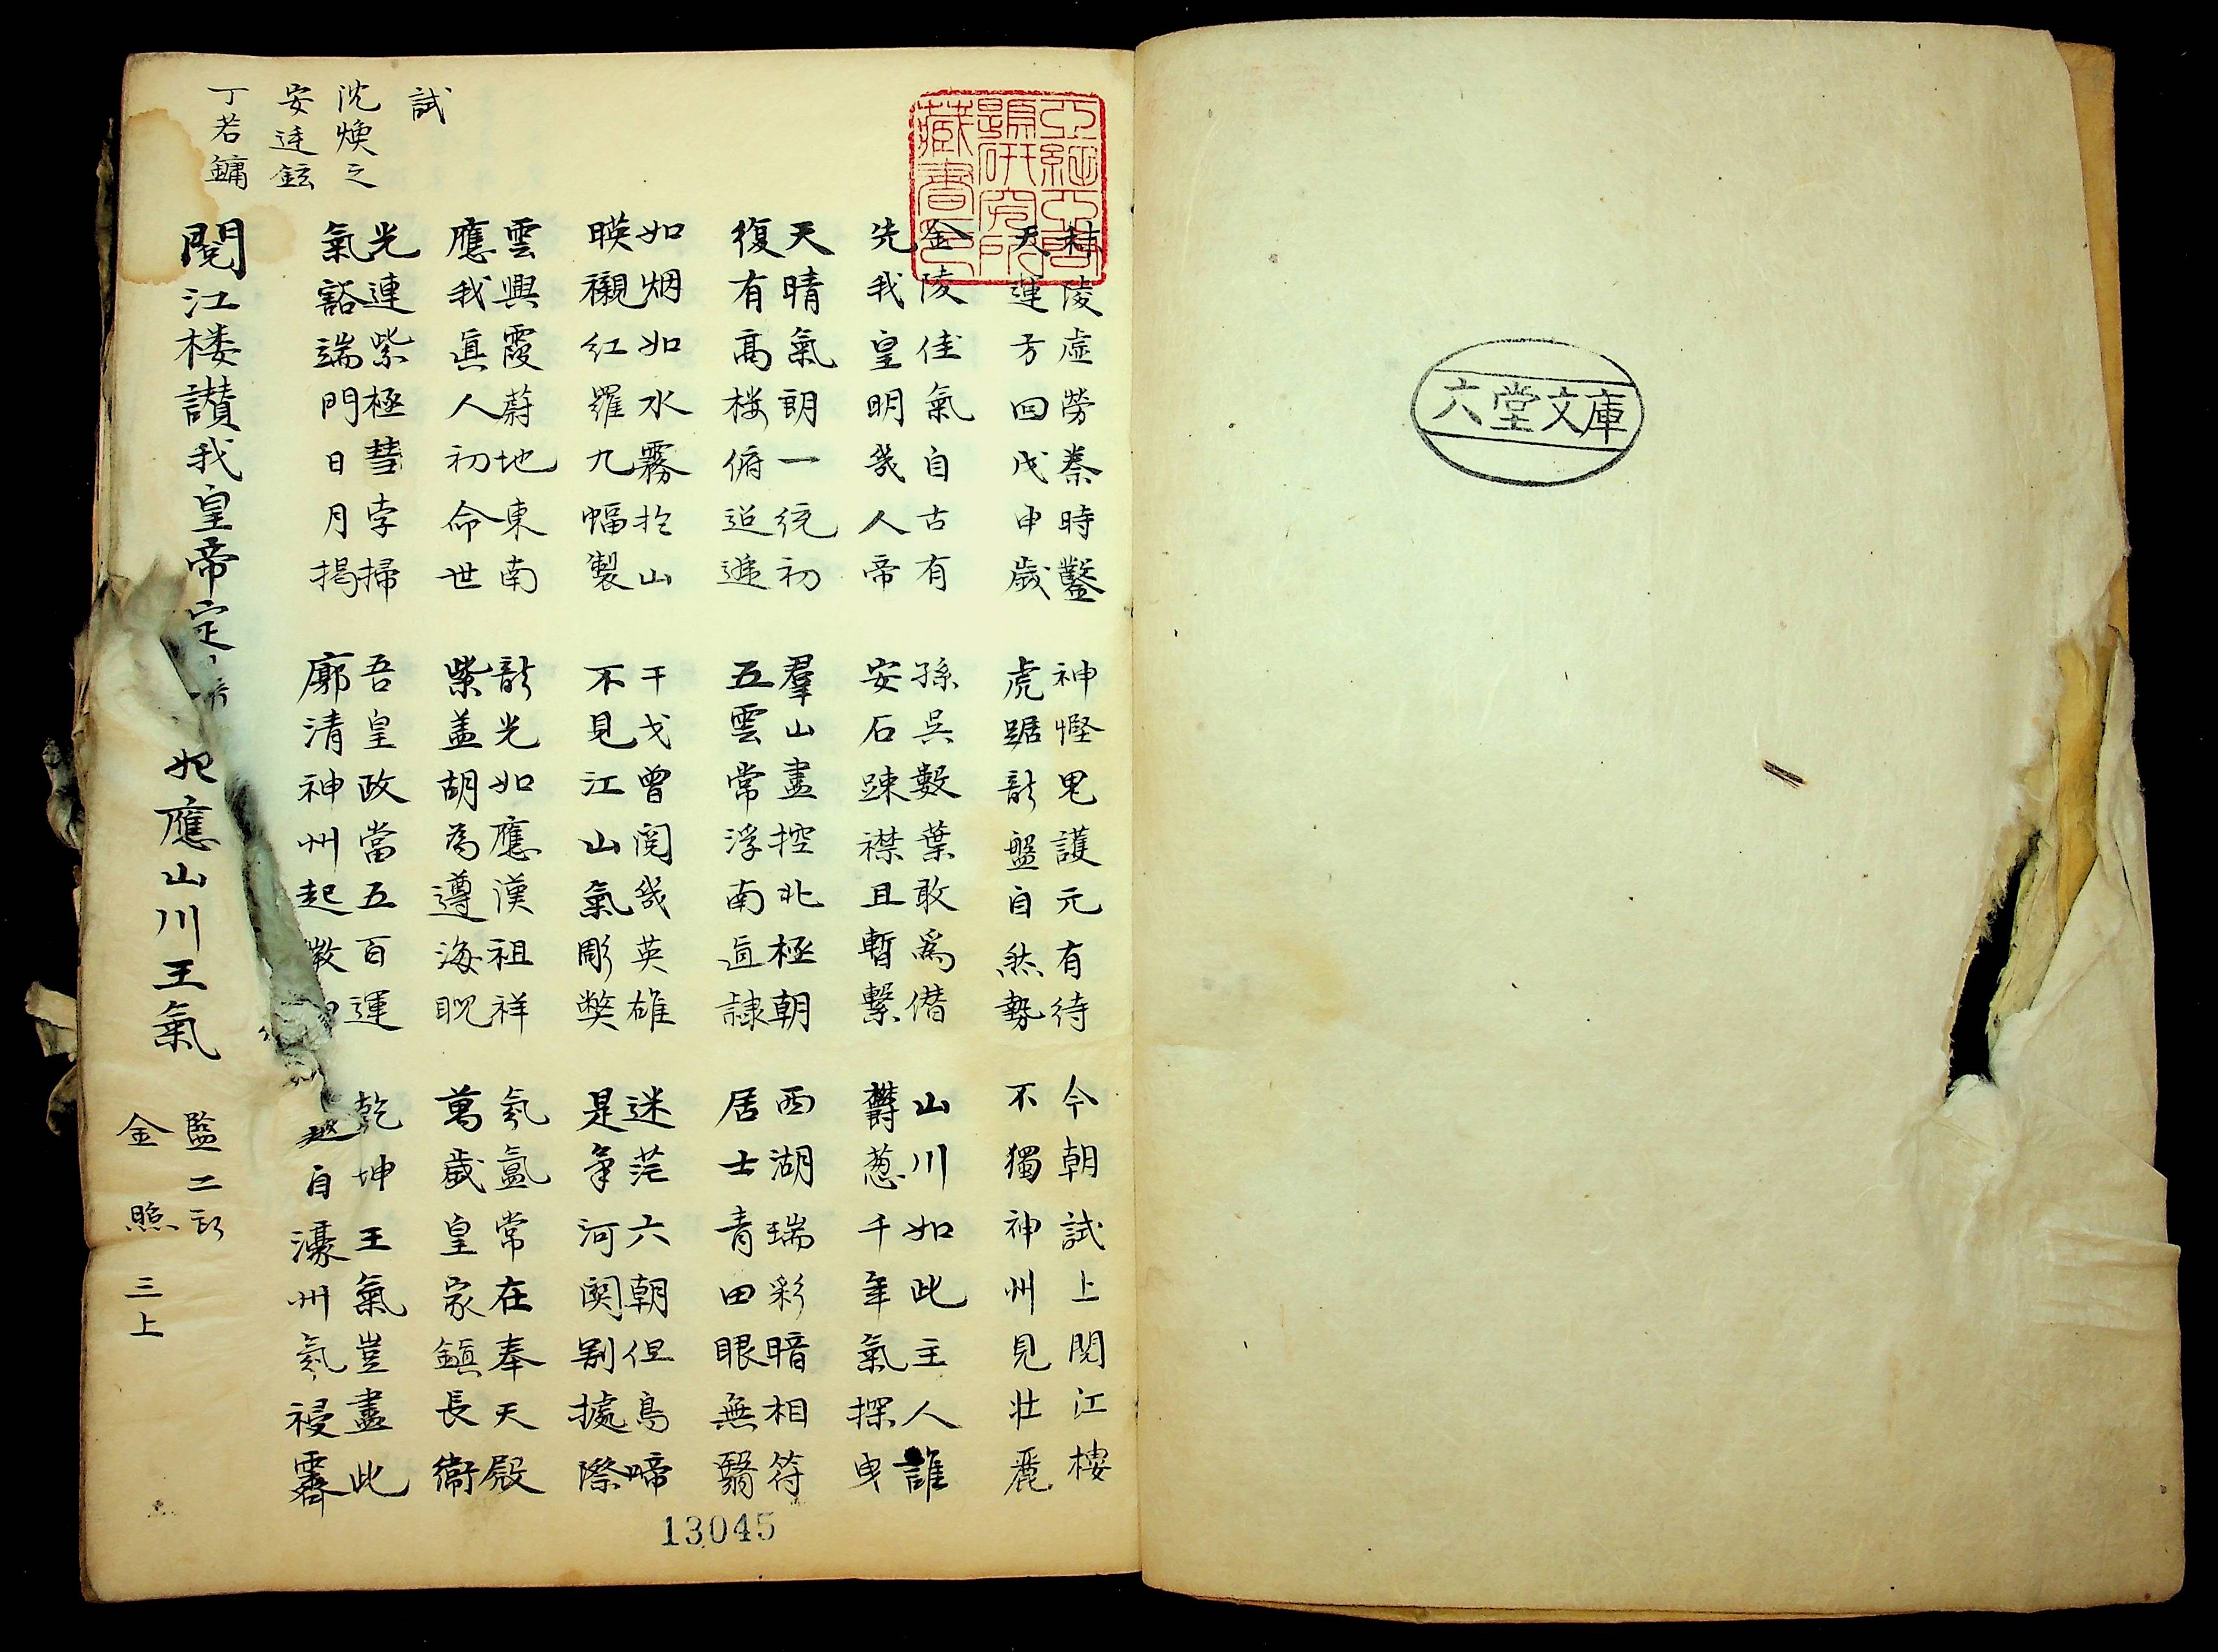 六堂文庫
亞細亞問
題研究所
藏書印
秣陵虛勞秦時鑿
天運方回戊申歲
神慳鬼護元有待
虎踞龍盤自然勢
今朝試上閱江樓
不獨神州見壯麗
金陵佳氣自古有
先我皇明幾人帝
孫吳數葉敢爲僭
安石踈襟且暫繫
山川如此主人誰
欝葱千年氣探曳
天晴氣朗一統初
復有高楼俯迢遞
羣山盡控北極朝
五雲常浮南直隷
西湖瑞彩暗相符
居士青田眼無翳
如烟如水霧於山
暎襯紅羅九幅製
干戈曾閱幾英雄
不見江山氣彫獘
迷茫六朝但鳥啼
是爭河関割據際
雲興霞蔚地東南
應我眞人初命世
龍光如應漢祖祥
紫盖胡爲遵海睨
氛氳常在奉天殿
萬歲皇家鎮長衛
光連紫極彗孛掃
氣豁端門日月揭
吾皇政當五百運
廓清神州起
乾坤王氣豈盡此
自濠州氛祲霽
閱江楼讃我皇帝定
始應山川王氣
試
沈煥之
安廷鉉
丁若鏞
監二
金照
三上
13045